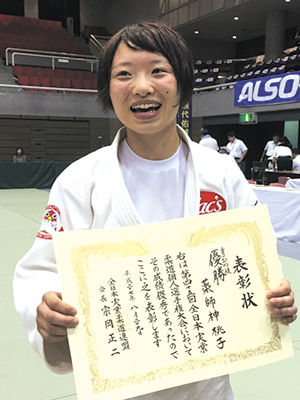 ALSO
代佑
ac's
表彰状
優勝 薬師神 桃子
右は第四五回全日本実業
柔道個人選手権大会において
その成績優秀であったので
ここに之を表彰します
平成二七年八月
全日本実業柔道連盟
会長 宗岡正二